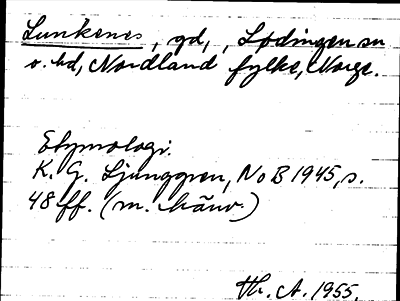 Lunkenes, gd, Lødingen sn
o. hd, Nordland fylke, Norge.
Etymologi.
K. G. Ljunggren, NoB 1945, s.
48 ff. (m. hänv.)
Th. A. 1955.